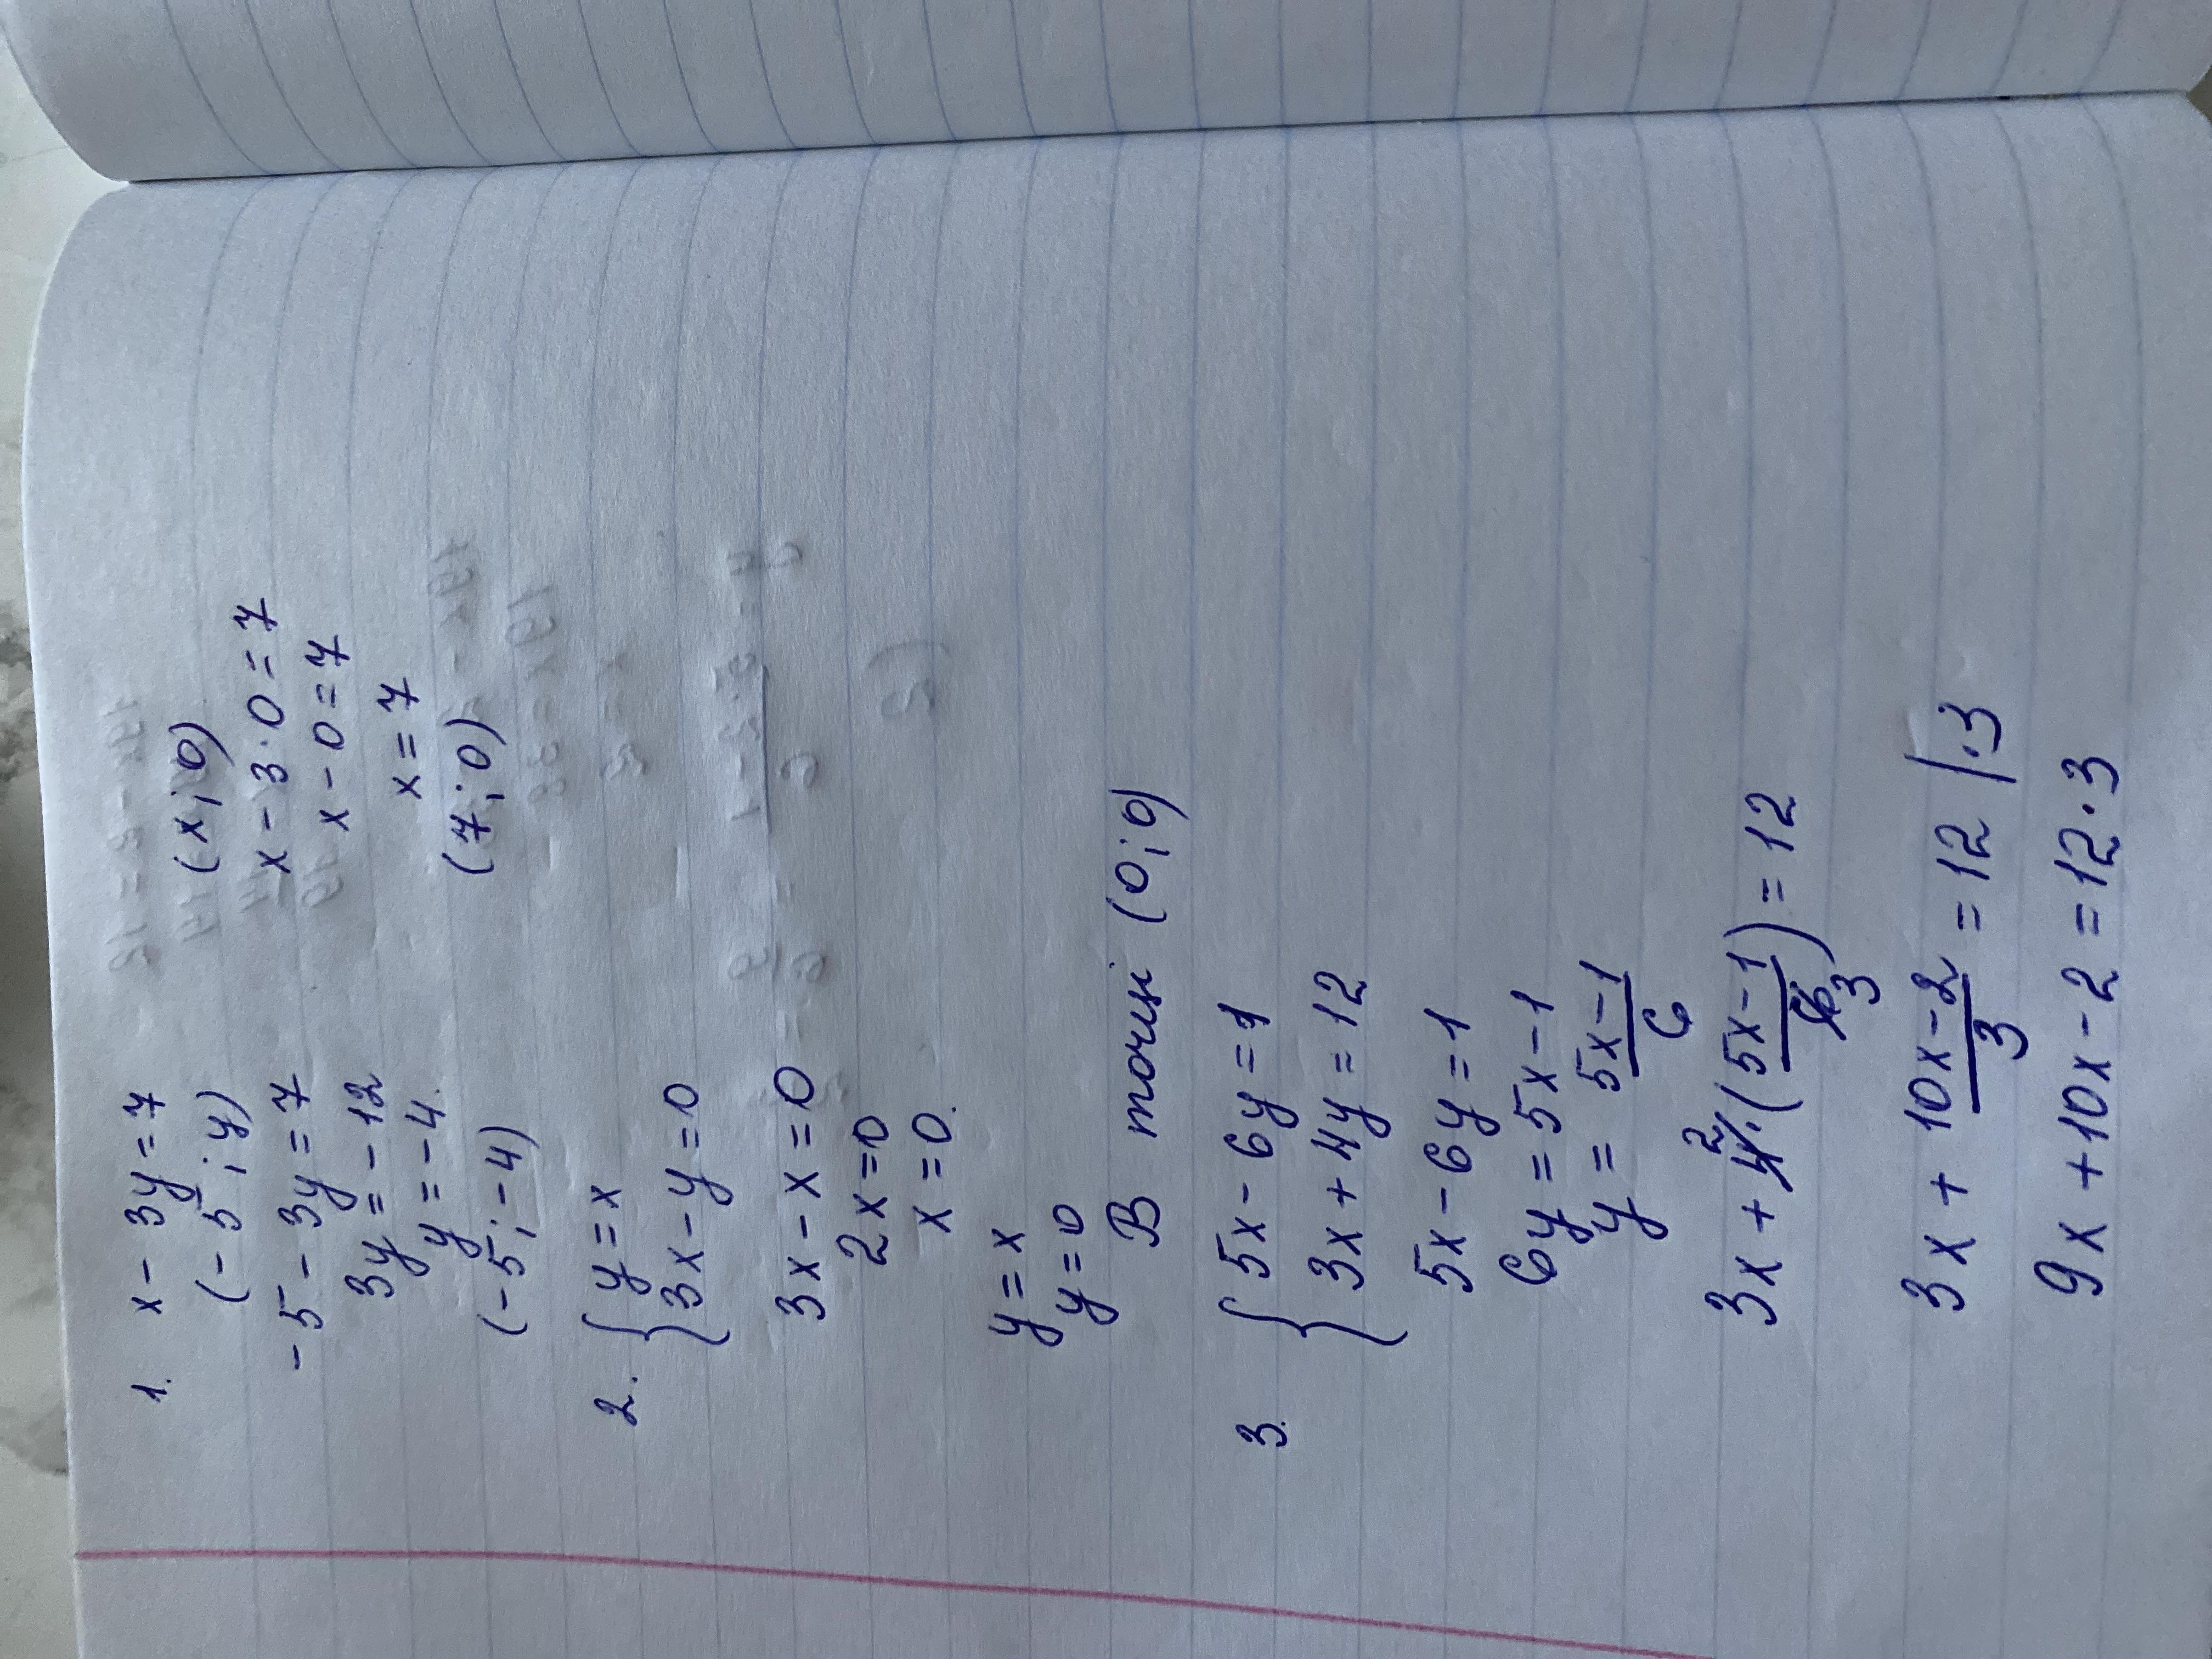 1. x - 3y = 7
(-5; y)
-5 - 3y = 7
3y = -12
y = -4.
(-5; -4)
(x; 0)
x - 3 · 0 = 7
x - 0 = 7
x = 7
(7; 0)
2. { y = x
3x - y = 0
3x - x = 0
2x = 0
x = 0.
y = x
y = 0
В точці (0; 0)
3. { 5x - 6y = 1
3x + 4y = 12
5x - 6y = 1
6y = 5x - 1
y = (5x - 1)/6
3x + 4 2 · ((5x - 1)/6 3) = 12
3x + (10x - 2)/3 = 12 | · 3
9x + 10x - 2 = 12 · 3